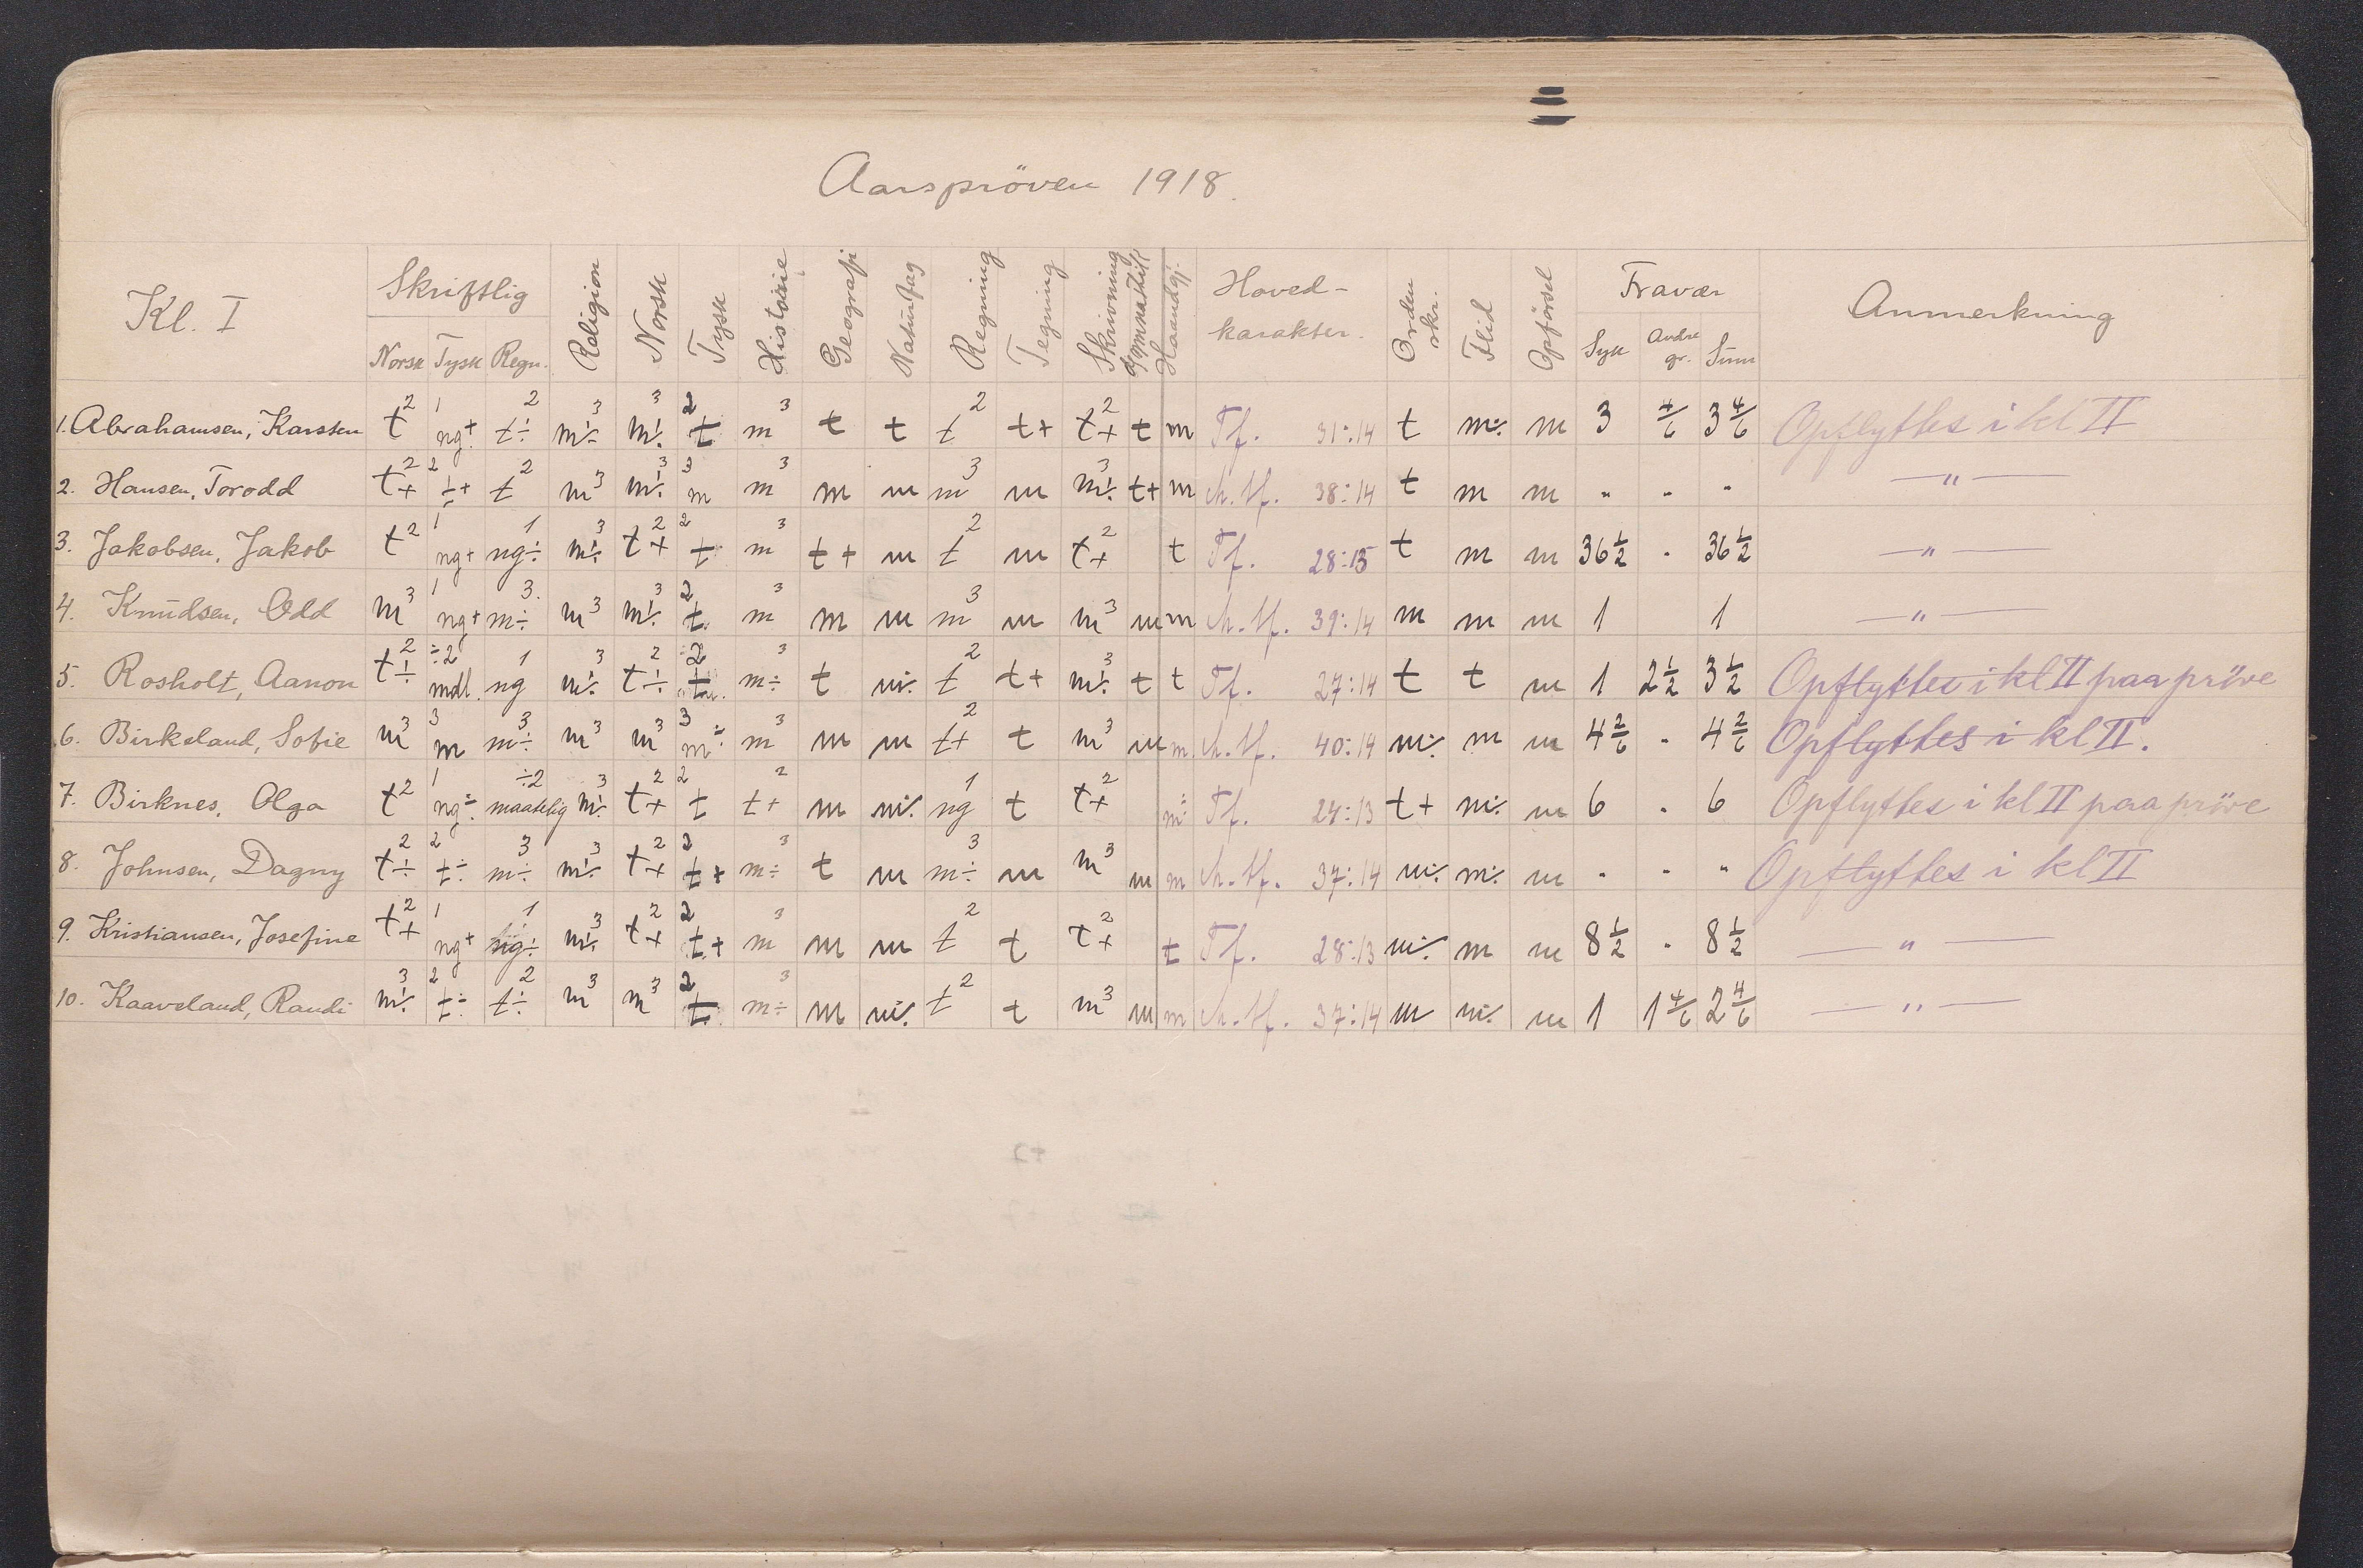 Aarspröven 1918.
Kl. I Skriftlig Religion Norsk Tysk Historie Geografi Naturfag Regning Tegning Skrivning Gymnastik Haandgj. Hoved-karakter. Orden skr. Flid Opförsel Fravær Anmerkning
Norsk Tysk Regn. Syk Andre gr. Sum
1. Abrahamsen, Karsten t2 ng+ 1 t÷ 2 m÷ 3 m÷ 3 t 2 m 3 t t t 2 t+ t+ 2 t m Tf. 31:14 t m÷ m 3 4/6 3 4/6 Opflyttes i kl II
2. Hansen, Torodd t+ 2 t+ 2 t 2 m 3 m÷ 3 m 3 m 3 m m m 3 m m÷ 3 t+ m M.tf. 38:14 t m m " " " — " —
3. Jakobsen, Jakob t 2 ng+ 1 ng÷ 1 m÷ 3 t+ 2 t 2 m 3 t+ m t 2 m t+ 2 t Tf. 28:13 t m m 36 1/2 " 36 1/2 — " —
4. Knudsen, Odd m 3 ng+ 1 m÷ 3 m 3 m÷ 3 t 2 m 3 m m m 3 m m 3 m m M.tf. 39:14 m m m 1 1 — " —
5. Rosholt, Aanon t÷ 2 mdl. ÷2 ng 1 m÷ 3 t÷ 2 t 2 m÷ 3 t m÷ t 2 t+ m÷ 3 t t Tf. 27:14 t t m 1 2 1/2 3 1/2 Opflyttes i kl II paa pröve
6. Birkeland, Sofie m 3 m 3 m÷ 3 m 3 m 3 m÷ 3 m 3 m m t+ 2 t m 3 m m M.tf. 40:14 m÷ m m 4 2/6 " 4 2/6 Opflyttes i kl II.
7. Birknes, Olga t 2 ng÷ 1 maatelig ÷2 m÷ 3 t+ 2 t 2 t+ 2 m m÷ ng 1 t t+ 2 m÷ Tf. 24:13 t+ m÷ m 6 " 6 Opflyttes i kl II paa pröve
8. Johnsen, Dagny t÷ 2 t÷ 2 m÷ 3 m÷ 3 t+ 2 t+ 2 m÷ 3 t m m÷ 3 m m 3 m m M.tf. 37:14 m÷ m÷ m " " " Opflyttes i kl II
9. Kristiansen, Josefine t+ 2 ng+ 1 ng÷ 1 m÷ 3 t+ 2 t+ 2 m 3 m m t 2 t t+ 2 t Tf. 28:13 m÷ m m 8 1/2 " 8 1/2 — " —
10. Kaaveland, Randi m÷ 3 t÷ 2 t÷ 2 m 3 m 3 t 2 m÷ 3 m m÷ t 2 t m 3 m m M.tf. 37:14 m m÷ m 1 1 4/6 2 4/6 — " —